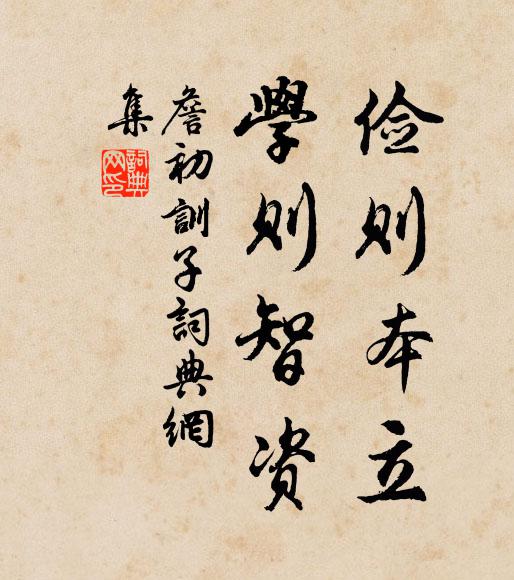 俭则本立
學则智资
詹初訓子詞典網
集
詞典
网印